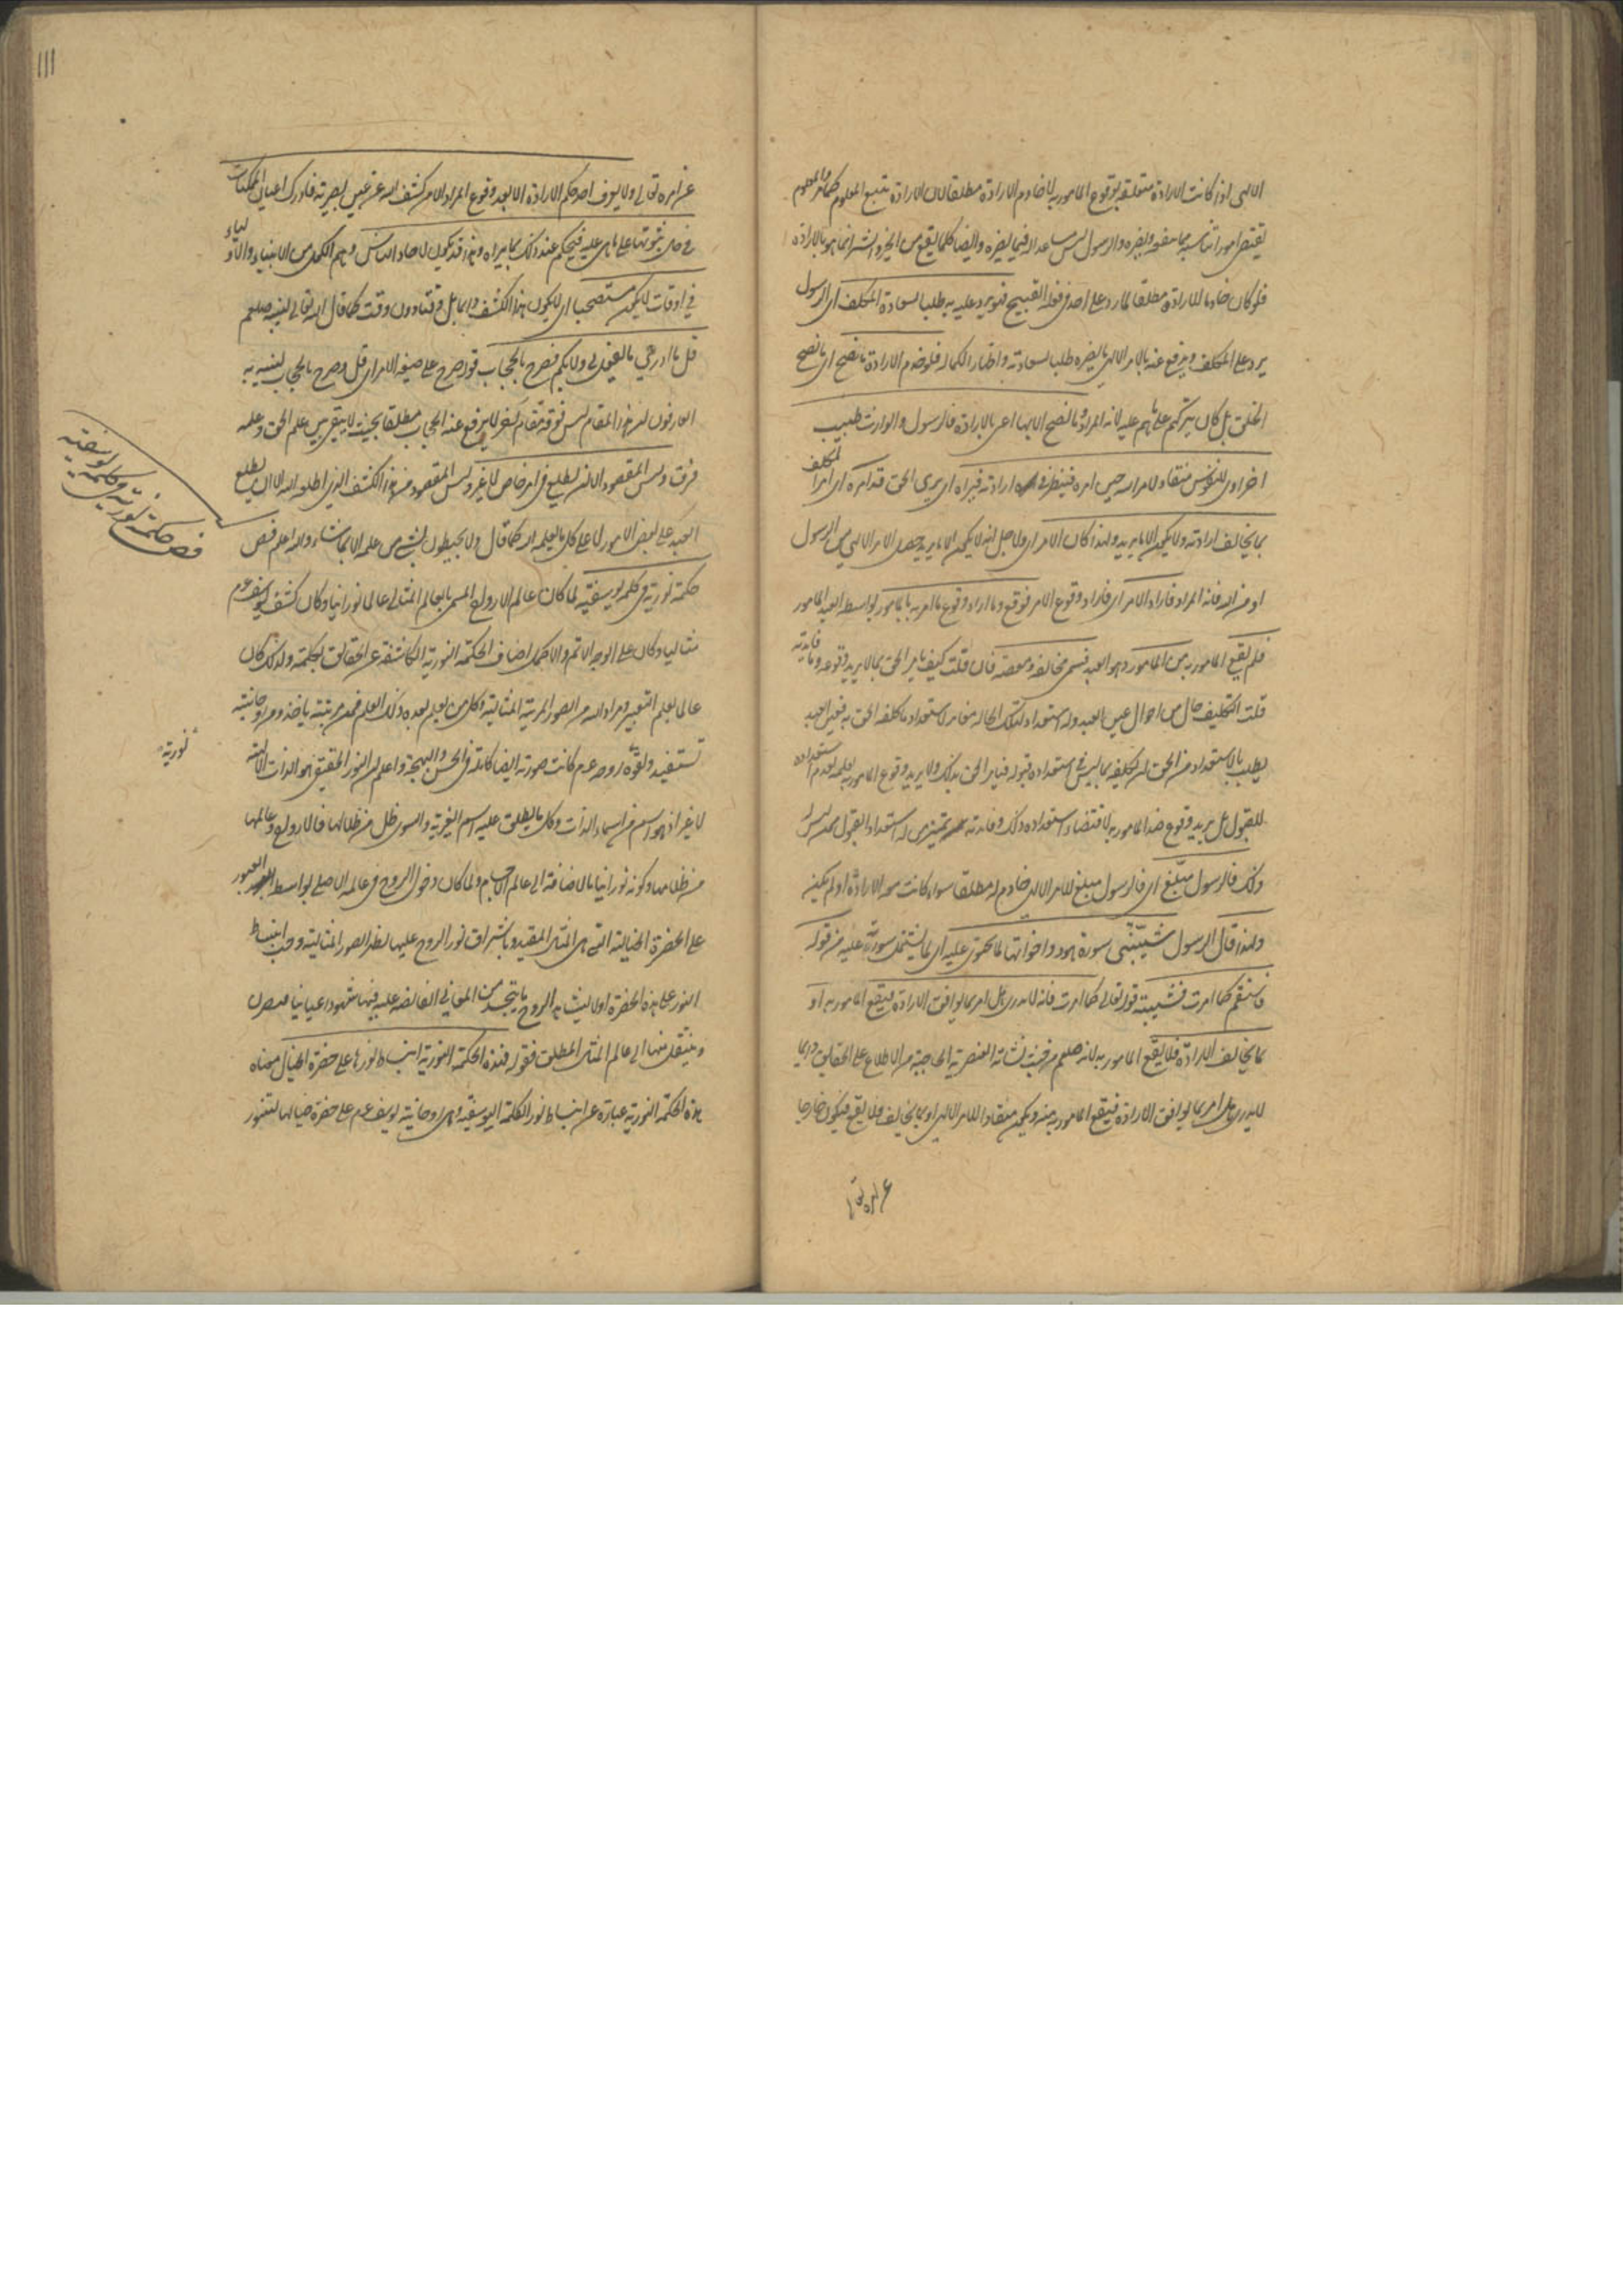 الالهى اذا كانت الارادة متعلقة بوقوع المامور به لا خادم الارادة مطلقا لان الارادة تتبع المعلوم كما مر والمعلوم
يقتضى امورا تناسبه مما ينفعه ويضره والرسول ليس مساعدا له فيما يضره وايضا كلما يقع من الخير والشر انما هو بالارادة
فلو كان خادما للارادة مطلقا لما رد على احد فى فعله القبيح فهو يرد عليه به طلبا لسعادة المكلف اى الرسول
يرد على المكلف ويدفع عنه بالامر الالهى ما يضره طلبا لسعادته واظهارا لكماله فلو خدم الارادة ما نصح اى ما نصح
الخلق بل كان يتركهم على ما هم عليه لانه المراد وما نصح الا بها اعنى بالارادة فالرسول والوارث طبيب
اخراوى للنفوس منقاد لامر الله حين امره فينظر فى امره وارادته فيراه اى يرى الحق قد امره اى امر المكلف
بما يخالف ارادته ولا يكون الا ما يريد ولهذا كان الامر اى ولاجل انه لا يكون الا ما يريد حصل الامر الالهى من الرسول
او من الله فانه المراد فاراد الامر اى فاراد وقوع الامر فوقع وما اراد وقوع ما امر به بالمامور بواسطة العبد المامور
فلم يقع المامور به من المامور وهو العبد فسمى مخالفة ومعصية فان قلت كيف يامر الحق بما لا يريد وقوعه وما فايدته
قلت التكليف حال من احوال عين العبد وله استعداد لتلك الحالة مغاير لاستعداد ما كلفه الحق به فعين العبد
يطلب بالاستعداد من الحق ان يكلفه بما ليس فى استعداده قبوله فيامر الحق بذلك ولا يريد وقوع المامور به لعلمه بعدم استعداده
للقبول بل يريد وقوع ضد المامور به لاقتضاء استعداده ذلك وفايدته تمييز من له استعداد القبول ممن ليس له
ذلك فالرسول مبلغ اى فالرسول مبلغ للامر الالهى خادم له مطلقا سواء كانت معه الارادة او لم تكن
ولهذا قال الرسول شيبتنى سورة هود واخواتها لما تحتوى عليه اى لما يشتمل سورة عليه من قوله
فاستقم كما امرت فشيبته قوله تعالى كما امرت فانه لا يدرى هل امر بما يوافق الارادة فيقع المامور به او
بما يخالف الارادة فلا يقع المامور به لانه صلعم من حيث نشأته العنصرية الحاجبة من الاطلاع على الحقايق دايما
لا يدرى هل امر بما يوافق الارادة فيقع المامور به منه ويكون منقادا للامر الالهى او بما يخالف فلا يقع فيكون خارجا
عن امره تعا
١١١
عن امره تعالى ولا يعرف احد حكم الارادة الا بعد وقوع المراد الا من كشف الله عن عين بصيرته فادرك اعيان الممكنات
فى حال ثبوتها على ما هى عليه فيحكم عند ذلك بما يراه وهذا قد يكون لاحاد الناس وهم الكمل من الانبياء والاولياء
فى اوقات لا يكون مستصحبا اى لا يكون هذا الكشف دايما بل وقتا دون وقت كما قال الله تعالى لنبيه صلعم
قل ما ادرى ما يفعل بى ولا بكم فصرح بالحجاب قوله صرح على صيغة الامر اى قل وصرح بالحجاب لنفسه به
العارفون ان هذا المقام ليس فوقه مقام لغير لا يرفع عنه الحجاب مطلقا بحيث لا يبقى بين علم الحق وعلمه
فرقت وليس المقصود الا ان يطلع فى امر خاص لا غير وليس المقصود من هذا الكشف الذى اطلعه الله الا ان يطلع
العبد على بعض الامور لا على كل ما يعلمه الله كما قال ولا يحيطون بشئ من علمه الا بما شاء والله اعلم فص
حكمة نورية فى كلمة يوسفية لما كان عالم الارواح المسمى بالعالم المثالى عالما نورانيا وكان كشف يوسف عم
مثاليا وكان على الوجه الاتم والاكمل اضاف الحكمة النورية الكاشفة عن الحقايق لكلمته ولذلك كان
عالما بعلم التعبير ومراد الله من الصور المرئية المثالية وكل من يعلم بعده ذلك العلم فمن مرتبته ياخذ ومن روحانيته
تستفيد ولقوة نورية روحه عم كانت صورته ايضا كاملة فى الحسن والبهجة واعلم ان النور الحقيقى هو الذات الالهية
لا غير اذ هو اسم من اسماء الذات وكل ما يطلق عليه اسم الغيرية والسوى ظل من ظلالها فالارواح وعالمها
من ظلالها وكونه نورانيا بالاضافة الى عالم الاجسام ولما كان دخول الروح فى عالمه الاصلى بواسطة العبور
على الحضرة الخيالية التى هى المثال المقيد وباشراق نور الروح عليها يظهر الصور المثالية وجب انبساط
النور على هذه الحضرة اولا ليشاهد الروح ما يتجسد من المعانى الفايضة عليه فيها شهودا عيانيا
وينتقل منها الى عالم المثال المطلق فقوله فهذه الحكمة النورية انبساط نورها على حضرة الخيال معناه
هذه الحكمة النورية عبارة عن انبساط نور الكلمة اليوسفية وهى روحانية يوسف عم على حضرة خيالها لتتنور
فص حكمة نورية فى كلمة يوسفية
نورية